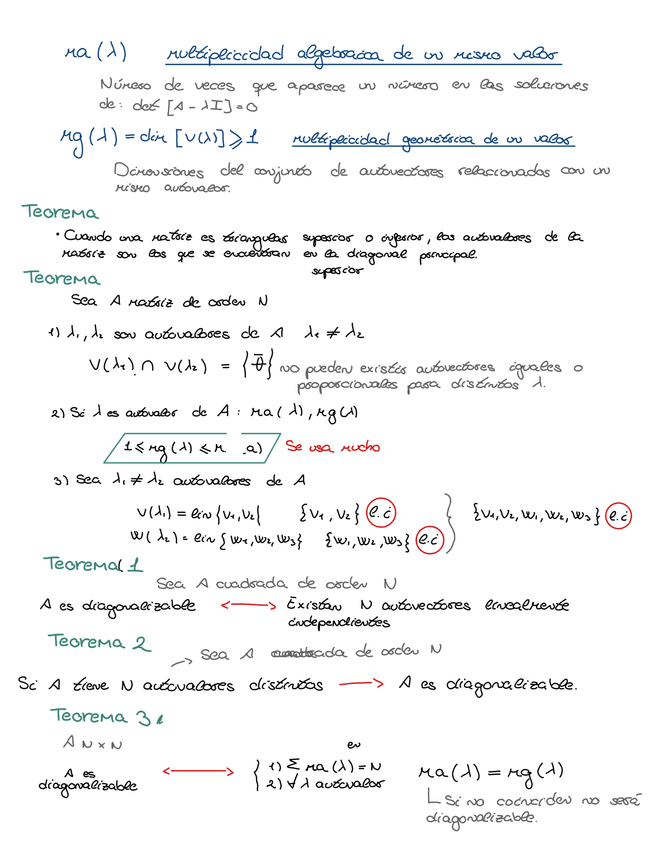 ma(λ) multiplicidad algebraica de un mismo valor
Número de veces que aparece un número en las soluciones
de: det [A - λI] = 0
mg(λ) = dim [V(λ)] ≥ 1 multiplicidad geométrica de un valor
Dimensiones del conjunto de autovectores relacionados con un
mismo autovalor.
Teorema
· Cuando una matriz es triangular superior o inferior, los autovalores de la
matriz son los que se encuentran en la diagonal principal.
superior
Teorema
Sea A matriz de orden N
1) λ₁, λ₂ son autovalores de A λ₁ ≠ λ₂
V(λ₁) ∩ V(λ₂) = {0̄} no pueden existir autovectores iguales o
proporcionales para distintos λ.
2) Si λ es autovalor de A : ma(λ), mg(λ)
1 ≤ mg(λ) ≤ m a) Se usa mucho
3) Sea λ₁ ≠ λ₂ autovalores de A
V(λ₁) = lin{v₁,v₂} {v₁,v₂} l.i {v₁,v₂,w₁,w₂,w₃} l.i
W(λ₂) = lin{w₁,w₂,w₃} {w₁,w₂,w₃} l.i
Teorema 1
Sea A cuadrada de orden N
A es diagonalizable ⟷ Existan N autovectores linealmente
independientes
Teorema 2
Sea A cuadrada de orden N
Si A tiene N autovalores distintos → A es diagonalizable.
Teorema 3
A N×N en
A es diagonalizable ⟷ { 1) Σ ma(λ) = N
2) ∀ λ autovalor ma(λ) = mg(λ)
Si no coinciden no será
diagonalizable.